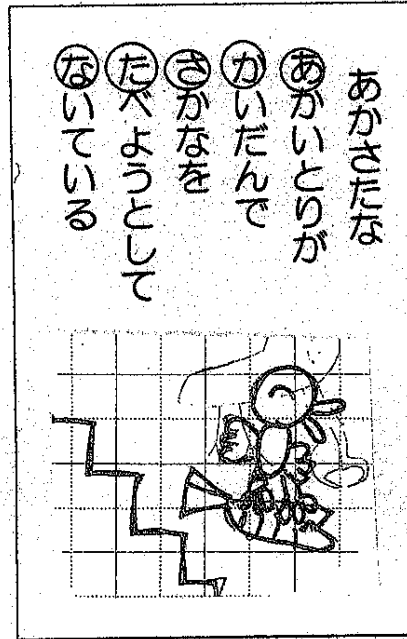 あかさたな
あかいとりが
かいだんで
さかなを
たべようとして
ないている